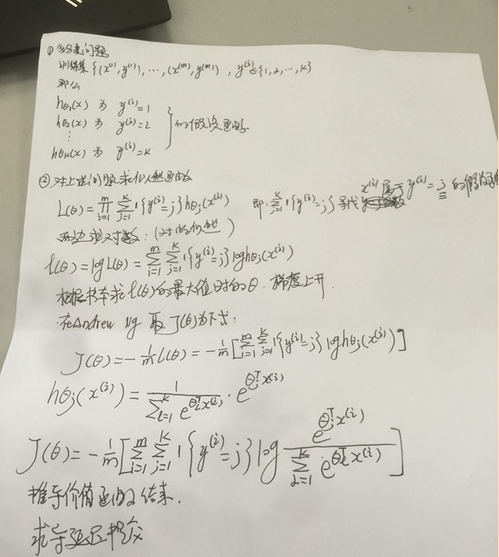 ① 多分类问题
训练集 {(x^(1), y^(1)), ..., (x^(m), y^(m))}, y^(i)∈{1, 2, ..., k}
那么
hθ₁(x) 为 y^(i)=1
hθ₂(x) 为 y^(i)=2 } 的假设函数
⋮
hθₖ(x) 为 y^(i)=k
② 对上述问题求似然函数
L(θ) = ∏_{i=1}^{m} ∑_{j=1}^{k} 1{y^(i)=j} hθⱼ(x^(i)) 即: ∑_{j=1}^{k} 1{y^(i)=j} 寻找 x^(i) 属于 y^(i)=j 的假设函数
两边求对数: (对数似然)
ℓ(θ) = log L(θ) = ∑_{i=1}^{m} ∑_{j=1}^{k} 1{y^(i)=j} log hθⱼ(x^(i))
根据书本求 ℓ(θ) 的最大值时的 θ. 梯度上升.
在 Andrew Ng 取 J(θ) 为下式:
J(θ) = -1/m ℓ(θ) = -1/m [∑_{i=1}^{m} ∑_{j=1}^{k} 1{y^(i)=j} log hθⱼ(x^(i))]
hθⱼ(x^(i)) = 1/(∑_{l=1}^{k} e^{θₗᵀx^(i)}) · e^{θⱼᵀx^(i)}
J(θ) = -1/m [∑_{i=1}^{m} ∑_{j=1}^{k} 1{y^(i)=j} log (e^{θⱼᵀx^(i)} / ∑_{l=1}^{k} e^{θₗᵀx^(i)})]
推导价值函数结果.
求导